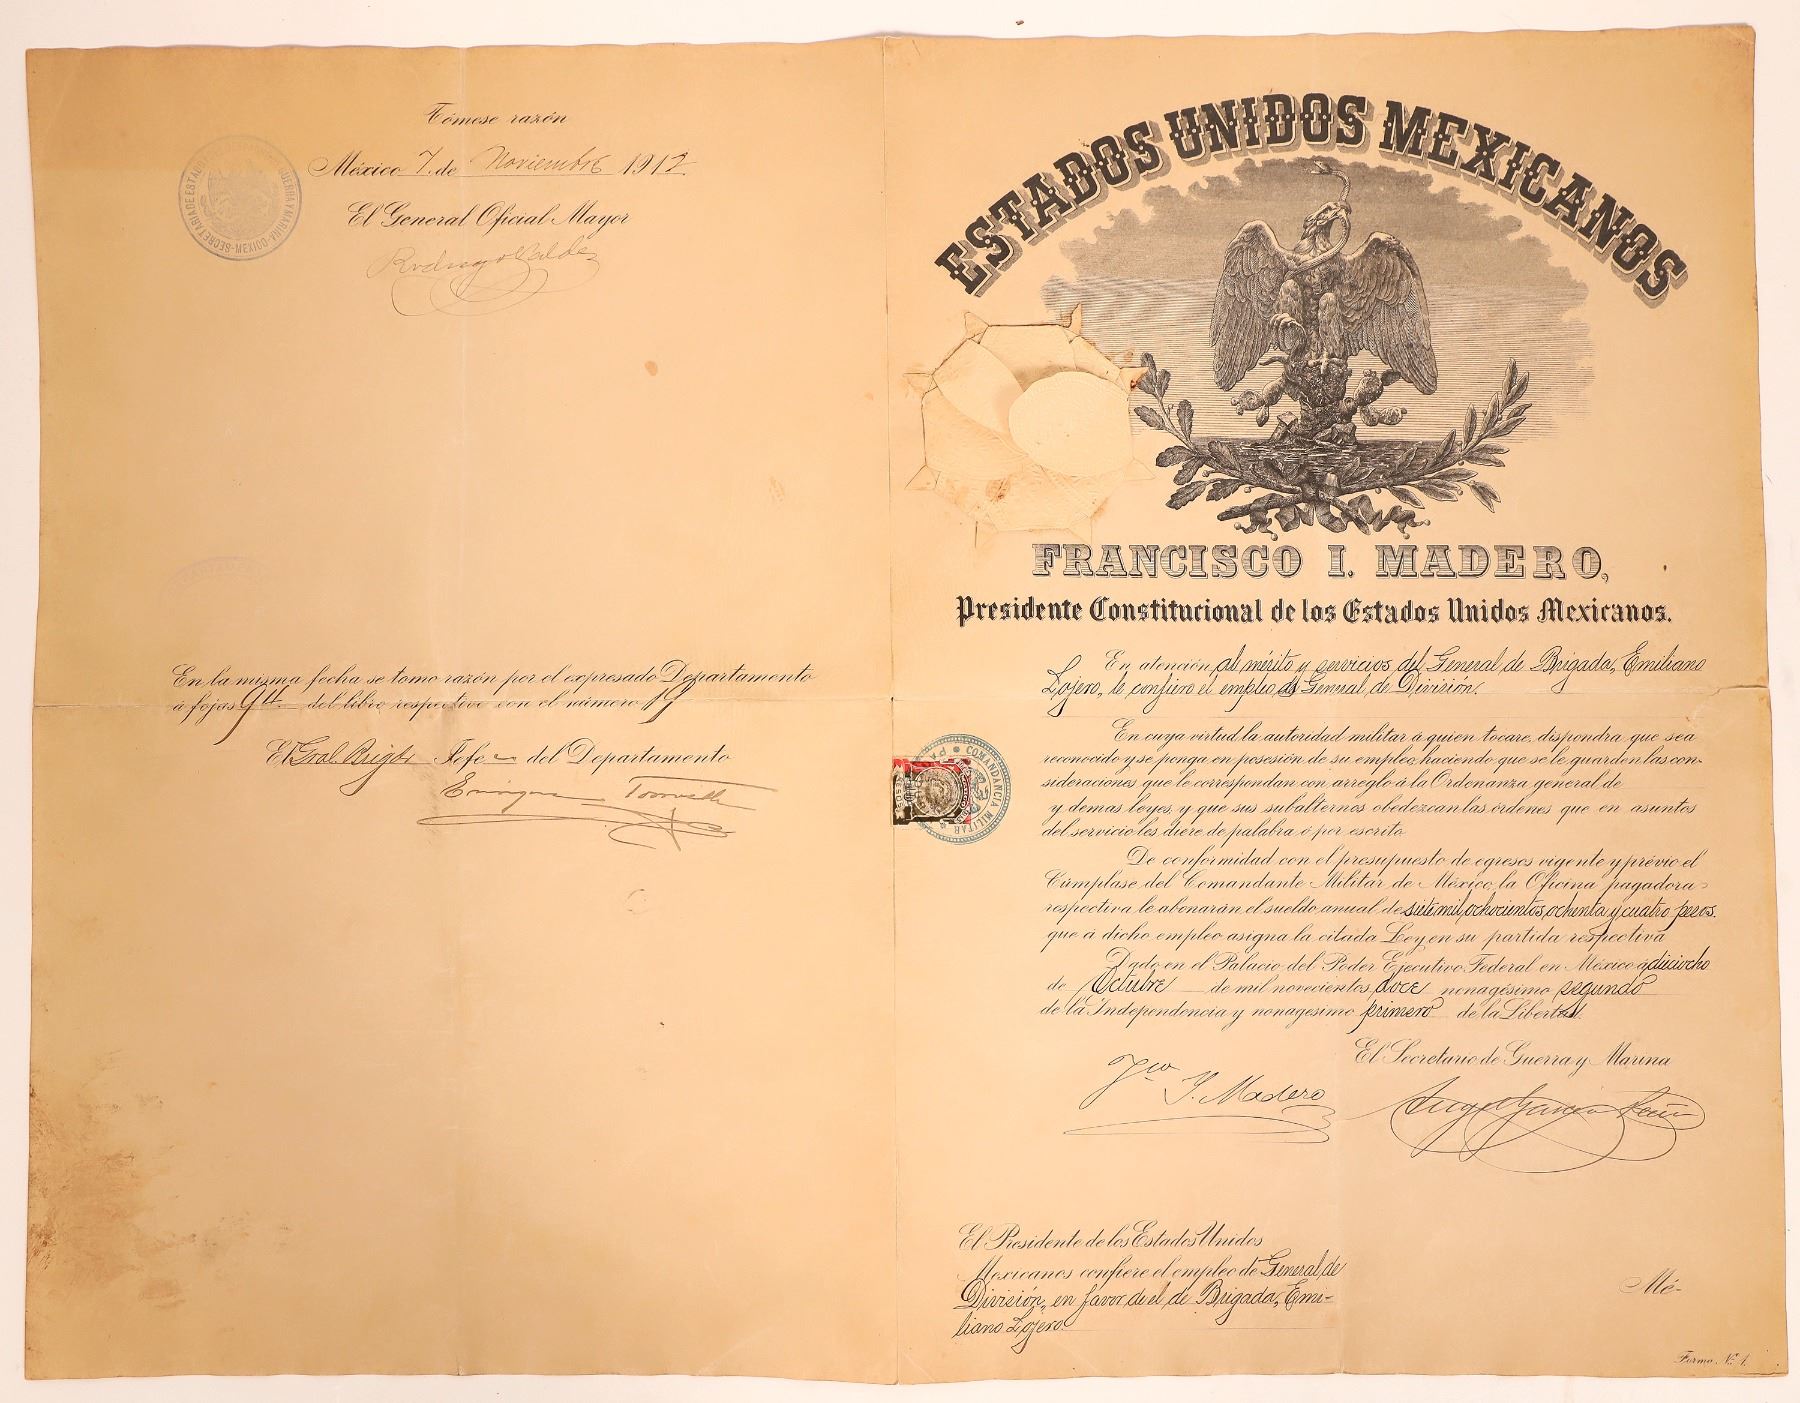 Tómese razón
México 7. de Noviembre 1912.
El General Oficial Mayor
Rodrigo Valdéz
SECRETARIA DE ESTADO GUERRA Y MARINA - MEXICO -
En la misma fecha se tomo razón por el expresado Departamento
á fojas 94 del libro respectivo con el número 19
El Gral Brigdr Jefe del Departamento
Enrique
ESTADOS UNIDOS MEXICANOS
FRANCISCO I. MADERO,
Presidente Constitucional de los Estados Unidos Mexicanos.
En atención al mérito y servicios del General de Brigada, Emiliano
Lojero, le confiero el empleo de General de División.
En cuya virtud, la autoridad militar á quien tocare, dispondra que sea
reconocido y se ponga en posesión de su empleo, haciendo que se le guarden las con-
sideraciones que le correspondan con arreglo á la Ordenanza general de
y demas leyes, y que sus subalternos obedezcan las órdenes que en asuntos
del servicio les diere de palabra ó por escrito
COMANDANCIA MILITAR
De conformidad con el presupuesto de egresos vigente y prévio el
Cúmplase del Comandante Militar de México, la Oficina pagadora
respectiva le abonarán el sueldo anual de siete mil, ochocientos, ochenta y cuatro pesos.
que á dicho empleo asigna la citada Ley en su partida respectiva
Dado en el Palacio del Poder Ejecutivo Federal en México á dieciocho
de Octubre de mil novecientos doce nonagésimo segundo
de la Independencia y nonagésimo primero de la Libertad.
El Secretario de Guerra y Marina
Fco I. Madero
Angel García Peña
El Presidente de los Estados Unidos
Mexicanos confiere el empleo de General de
División, en favor del de Brigada, Emi-
liano Lojero.
Mé-
Forma Nº 1.